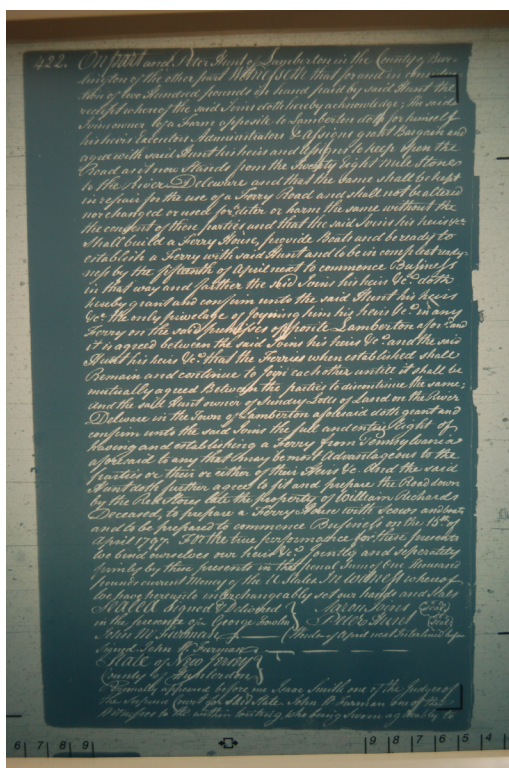 422. On part and Peter Hunt of Lamberton in the County of Bur-
lington of the other part Witnesseth that for and in consi
tion of two Hundred pounds in hand paid by said Hunt the
receipt whereof the said Ivins doth hereby acknowledge; the said
Ivins owner of a Farm opposite to Lamberton doth for himself
his heirs Executors Administrators & assigns grant Bargain and
agree with said Hunt his heirs and assigns to keep open the
Road as it now Stands from the Twenty Eight mile Stone
to the River Delaware and that the same shall be kept
in repair for the use of a Ferry Road and shall not be altered
nor changed or used for deter or harm the same without the
the consent of these parties and that the said Ivins his heirs &c.
Shall build a Ferry House, provide Boats and be ready to
establish a Ferry with said Hunt and to be in compleat redy-
ness by the fifteenth of April next to commence Business
in that way and further the said Ivins his heirs &c. doth
hereby grant and confirm unto the said Hunt his heirs
&c. the only privelage of joyning him his heirs &c. in any
Ferry on the said premises opposite Lamberton afor. and
it is agreed between the said Ivins his heirs &c. and the said
Hunt his heirs &c. that the Ferries when established shall
Remain and continue to join each other untill it shall be
mutually agreed Between the parties to discontinue the same;
And the said Hunt owner of Sundry Lotts of Land on the River
Deleware in the Town of Lamberton aforesaid doth grant and
confirm unto the said Ivins the full and entire Right of
having and establishing a Ferry from Pennsylvania
aforesaid to any that may be most Advantageous to the
Parties or their or either of their Heirs &c. And the said
Hunt doth further agree to fit and prepare the Road down
by the Red Store late the property of William Richards
Deceased, to prepare a Ferry House with Scows and boats
and to be prepared to commence Business on the 15th of
April 1797. For the true performance for these presents
we bind ourselves our heirs &c. jointly and seperately
firmly by these presents in the penal Sum of One thousand
pounds current Money of the U States. In witness whereof
we have hereunto interchangeably set our hands and Seals
Sealed Signed & Delivered } Aaron Ivins (Seal)
in the presence of George Fowler } Peter Hunt (Seal)
John W. Furman (Under April next Interlined before
Signed John W. Furman
State of New Jersey }
County of Hunterdon }
Personally appeared before me Isaac Smith one of the Judges of
the Supreme Court for said State John W Furman one of the
Witnesses to the within writing who being sworn agreeably to
6 7 8 9 9 8 7 6 5 4